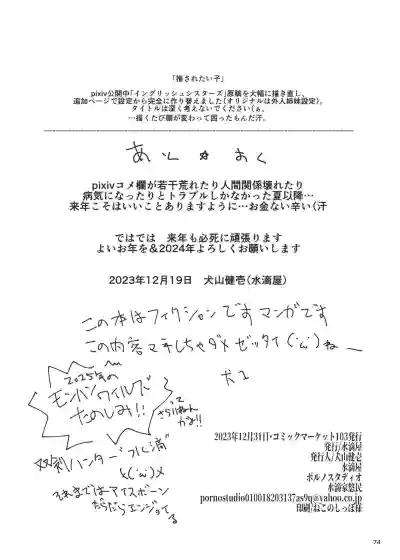 「推されたい子」
pixiv公開中「イングリッシュシスターズ」原稿を大幅に描き直し、
追加ページで設定から完全に作り替えました(オリジナルは外人姉妹設定)。
タイトルは深く考えないでください(ぁ。
…描くたび顔が変わって困ったもんだ汗。
あとがき
pixivコメ欄が若干荒れたり人間関係壊れたり
病気になったりとトラブルしかなかった夏以降…
来年こそはいいことありますように…お金ない辛い(汗
ではでは 来年も必死に頑張ります
よいお年を&2024年よろしくお願いします
2023年12月19日 犬山健壱(水滴屋)
この本はフィクションですマンガです
この内容マネしちゃダメ ゼッタイ(・ω・)ねー
犬山
2025年の
モンハンワイルズ
たのしみ!!
双剣ハンター
それまではアイスボーン
だらだらエンジョイする
2023年12月31日・コミックマーケット103発行
発行/水滴屋
発行人/犬山健壱
水滴屋
ポルノスタディオ
水滴家悠民
pornostudio010018203137as9q@yahoo.co.jp
印刷/ねこのしっぽ様
24